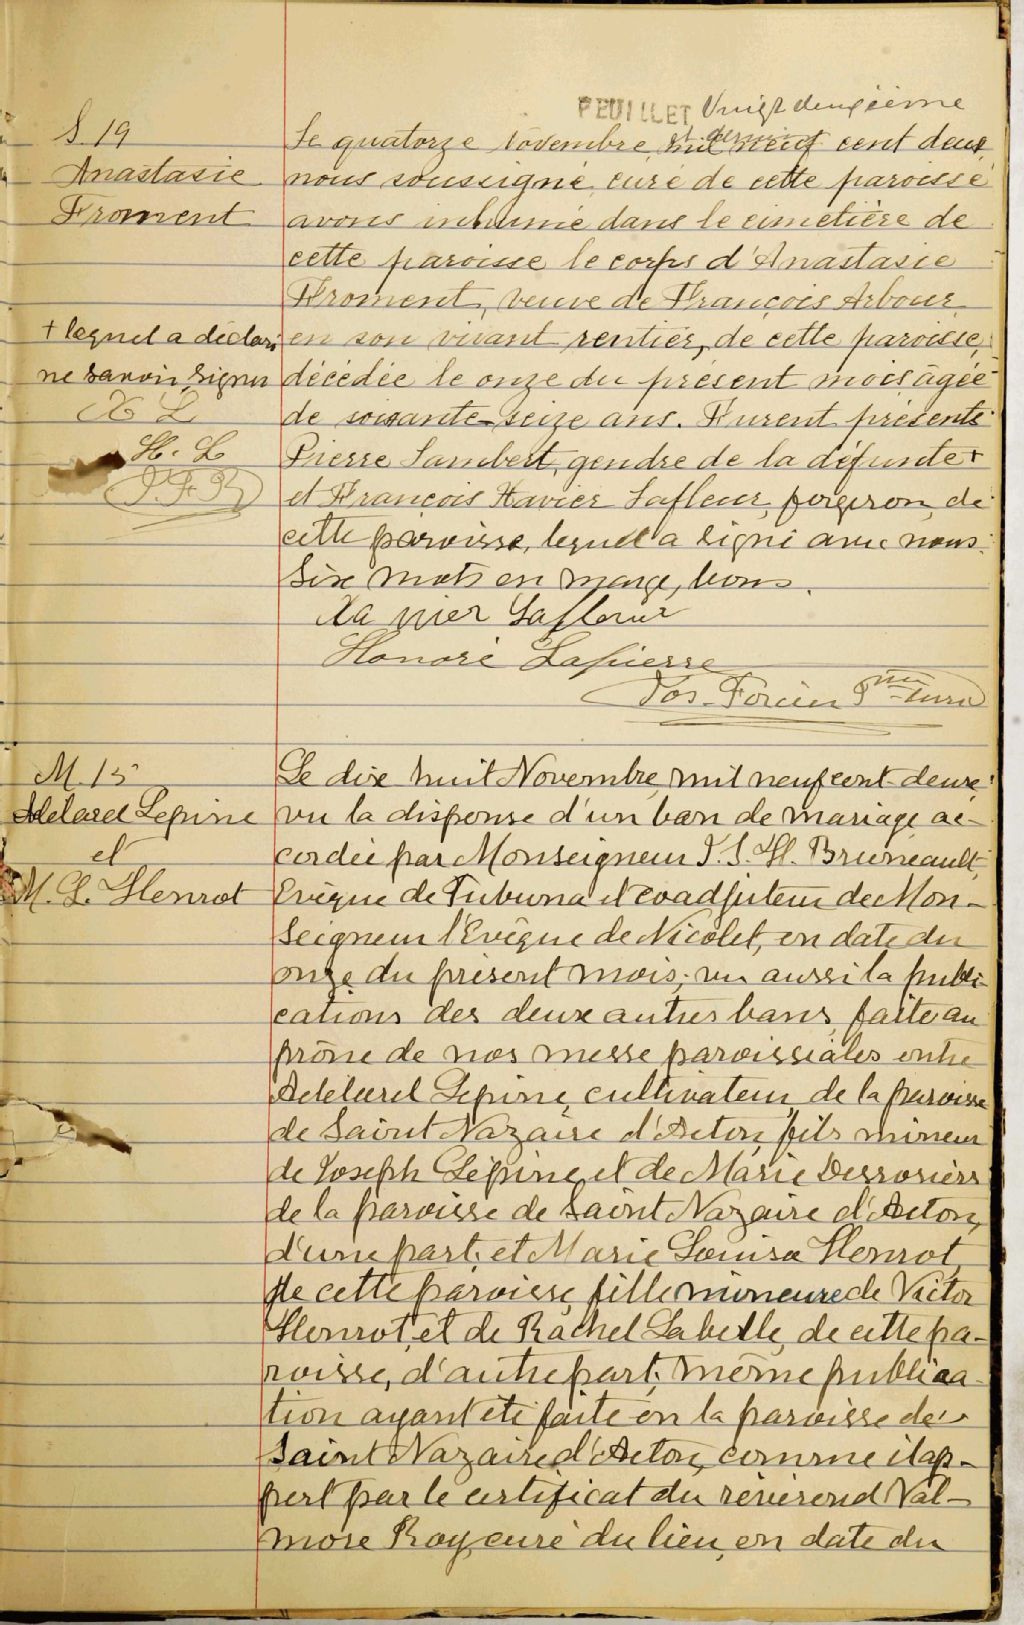 FEUILLET Vingt deuxième
et dernier
S. 19
Anastasie
Froment
Le quatorze Novembre mil neuf cent deux
nous soussigné, curé de cette paroisse
avons inhumé dans le cimetière de
cette paroisse le corps d'Anastasie
Froment, veuve de François Arbour
en son vivant rentier, de cette paroisse,
décédée le onze du présent mois âgée
de soixante-seize ans. Furent présents
Pierre Lambert, gendre de la défunte +
et François Xavier Lafleur, forgeron, de
cette paroisse, lequel a signé avec nous.
Six mots en marge, bons.
+ lequel a déclaré
ne savoir signer
X L
H. L
J. F. P.
Xavier Lafleur
Honoré Lapierre
Jos. Forcier Ptre curé
M. 15
Adelard Lepine
et
M. L. Henrot
Le dix huit Novembre mil neuf cent deux,
vu la dispense d'un ban de mariage ac-
cordée par Monseigneur J. S. H. Bruneault,
Evêque de Tubuna et coadjuteur de Mon-
seigneur l'Evêque de Nicolet, en date du
onze du présent mois; vu aussi la publi-
cations des deux autres bans, faite au
prône de nos messe paroissiales entre
Adelard Lepine, cultivateur, de la paroisse
de Saint Nazaire d'Acton, fils mineur
de Joseph Lépine et de Marie Desrosiers
de la paroisse de Saint Nazaire d'Acton,
d'une part; et Marie Louise Henrot,
de cette paroisse, fille mineure de Victor
Henrot, et de Rachel Labelle, de cette pa-
roisse, d'autre part; même publica-
tion ayant été faite en la paroisse de
Saint Nazaire d'Acton, comme il ap-
pert par le certificat du révérend Val-
more Roy, curé du lieu, en date du